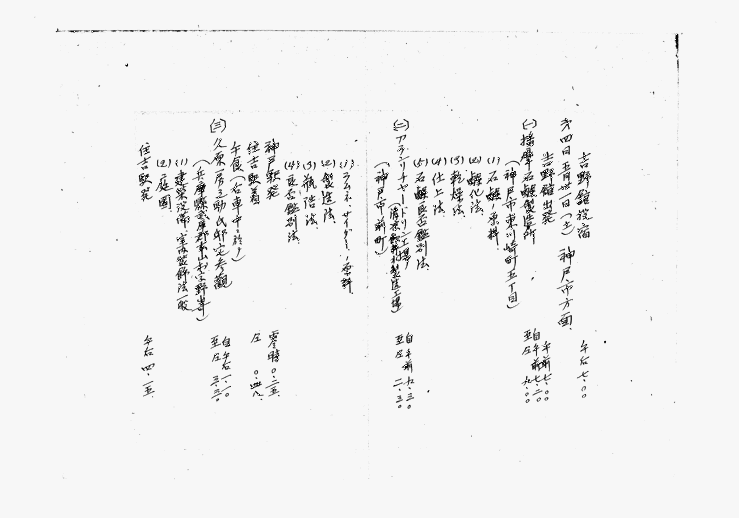 吉野舘投宿 午后七・〇〇
第四日 五月廿一日(土) 神戸市方面
吉野舘出発 午前七・〇〇
(一) 播摩石鹸製造所 自午前七・二〇 至仝 九・〇〇
(神戸市東川崎町五丁目)
(1) 石鹸ノ原料
(2) 鹸化法
(3) 乾燥法
(4) 仕上法
(5) 石鹸良否鑑別法
(二) 自午前九・三〇 至仝
(神戸市前町)
(1) ラムネ、サイダーノ原料
(2) 製造法
(3) 瓶詰法
(4) 良否鑑別法
神戸駅発 零時〇・二五
住吉駅着 仝 〇・四八
午食(台車中ニ於テ)
(三) 久原房之助氏邸宅参観 自午后一・一〇 至仝 三・三〇
(兵庫縣武庫郡本山村字野寄)
(1) 建築設備室内装飾法一般
(2) 庭園
住吉駅発 午后四・一五